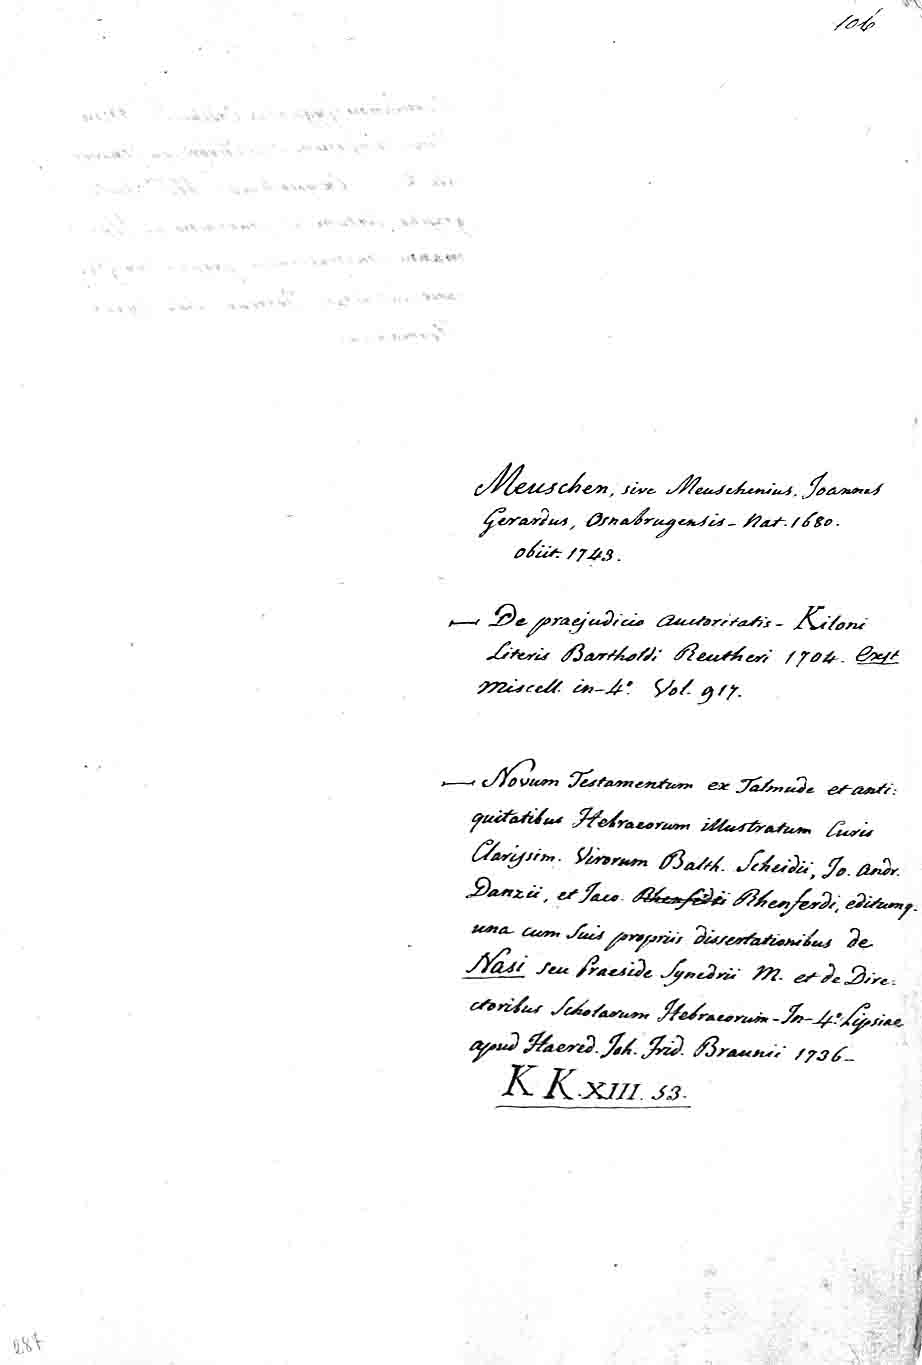 106
Meuschen, sive Meuschenius. Joannes
Gerardus, Osnabrugensis - Nat. 1680.
obiit. 1743.
— De praejudicio Auctoritatis - Kiloni
Literis Bartholdi Reutheri 1704. Exst
Miscell. in-4° Vol. 917.
— Novum Testamentum ex Talmude et anti:
quitatibus Hebraeorum illustratum Curis
Clarissim. Virorum Balth. Scheidii, Jo. Andr.
Danzii, et Jaco. Rhenfidii Rhenferdi, editumq.
una cum suis propriis dissertationibus de
Nasi seu Praeside Synedrii M. et de Dire:
ctoribus Scholarum Hebraeorum - In-4° Lipsiae
apud Haered. Joh. Frid. Braunii 1736 -
KK.XIII. 53.
287